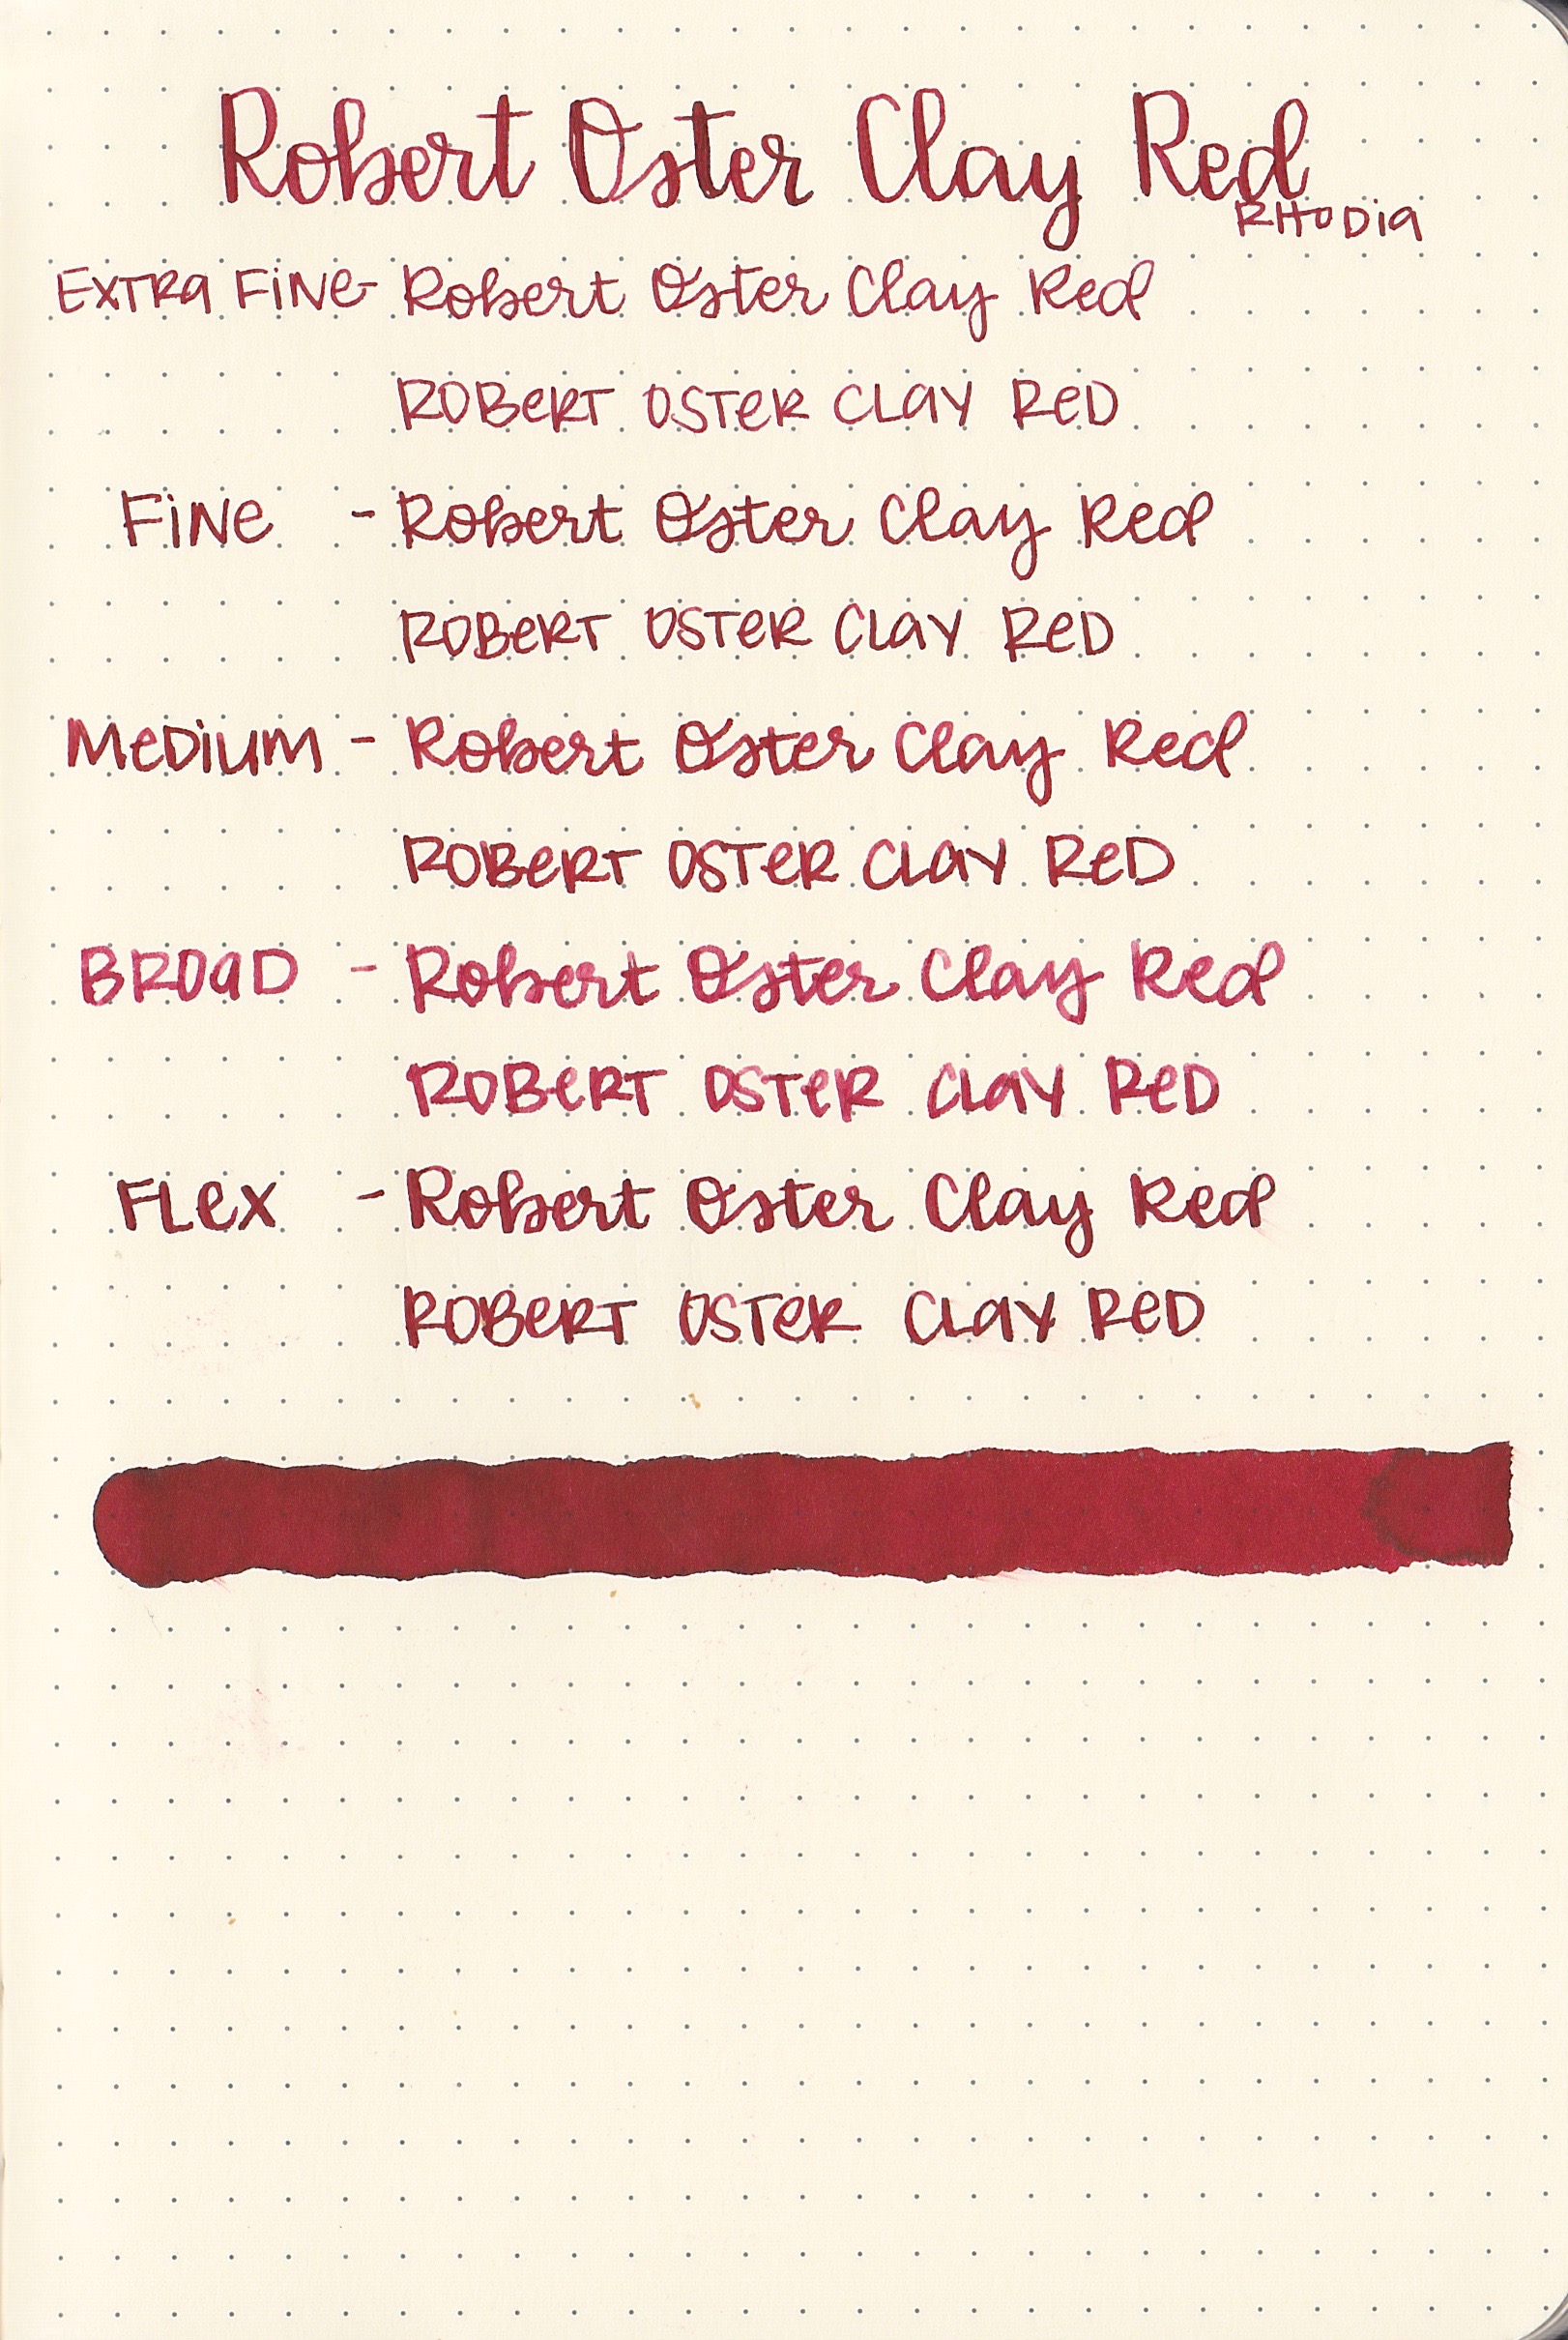 Robert Oster Clay Red
RHODia
EXTRa FiNe- Robert Oster Clay Red
ROBeRT OSTeR CLaY ReD
FiNe - Robert Oster Clay Red
ROBeRT OSTeR CLaY ReD
MeDiUM - Robert Oster Clay Red
ROBeRT OSTeR CLaY ReD
BROaD - Robert Oster Clay Red
ROBeRT OSTeR CLaY ReD
FLeX - Robert Oster Clay Red
ROBeRT OSTeR CLaY ReD